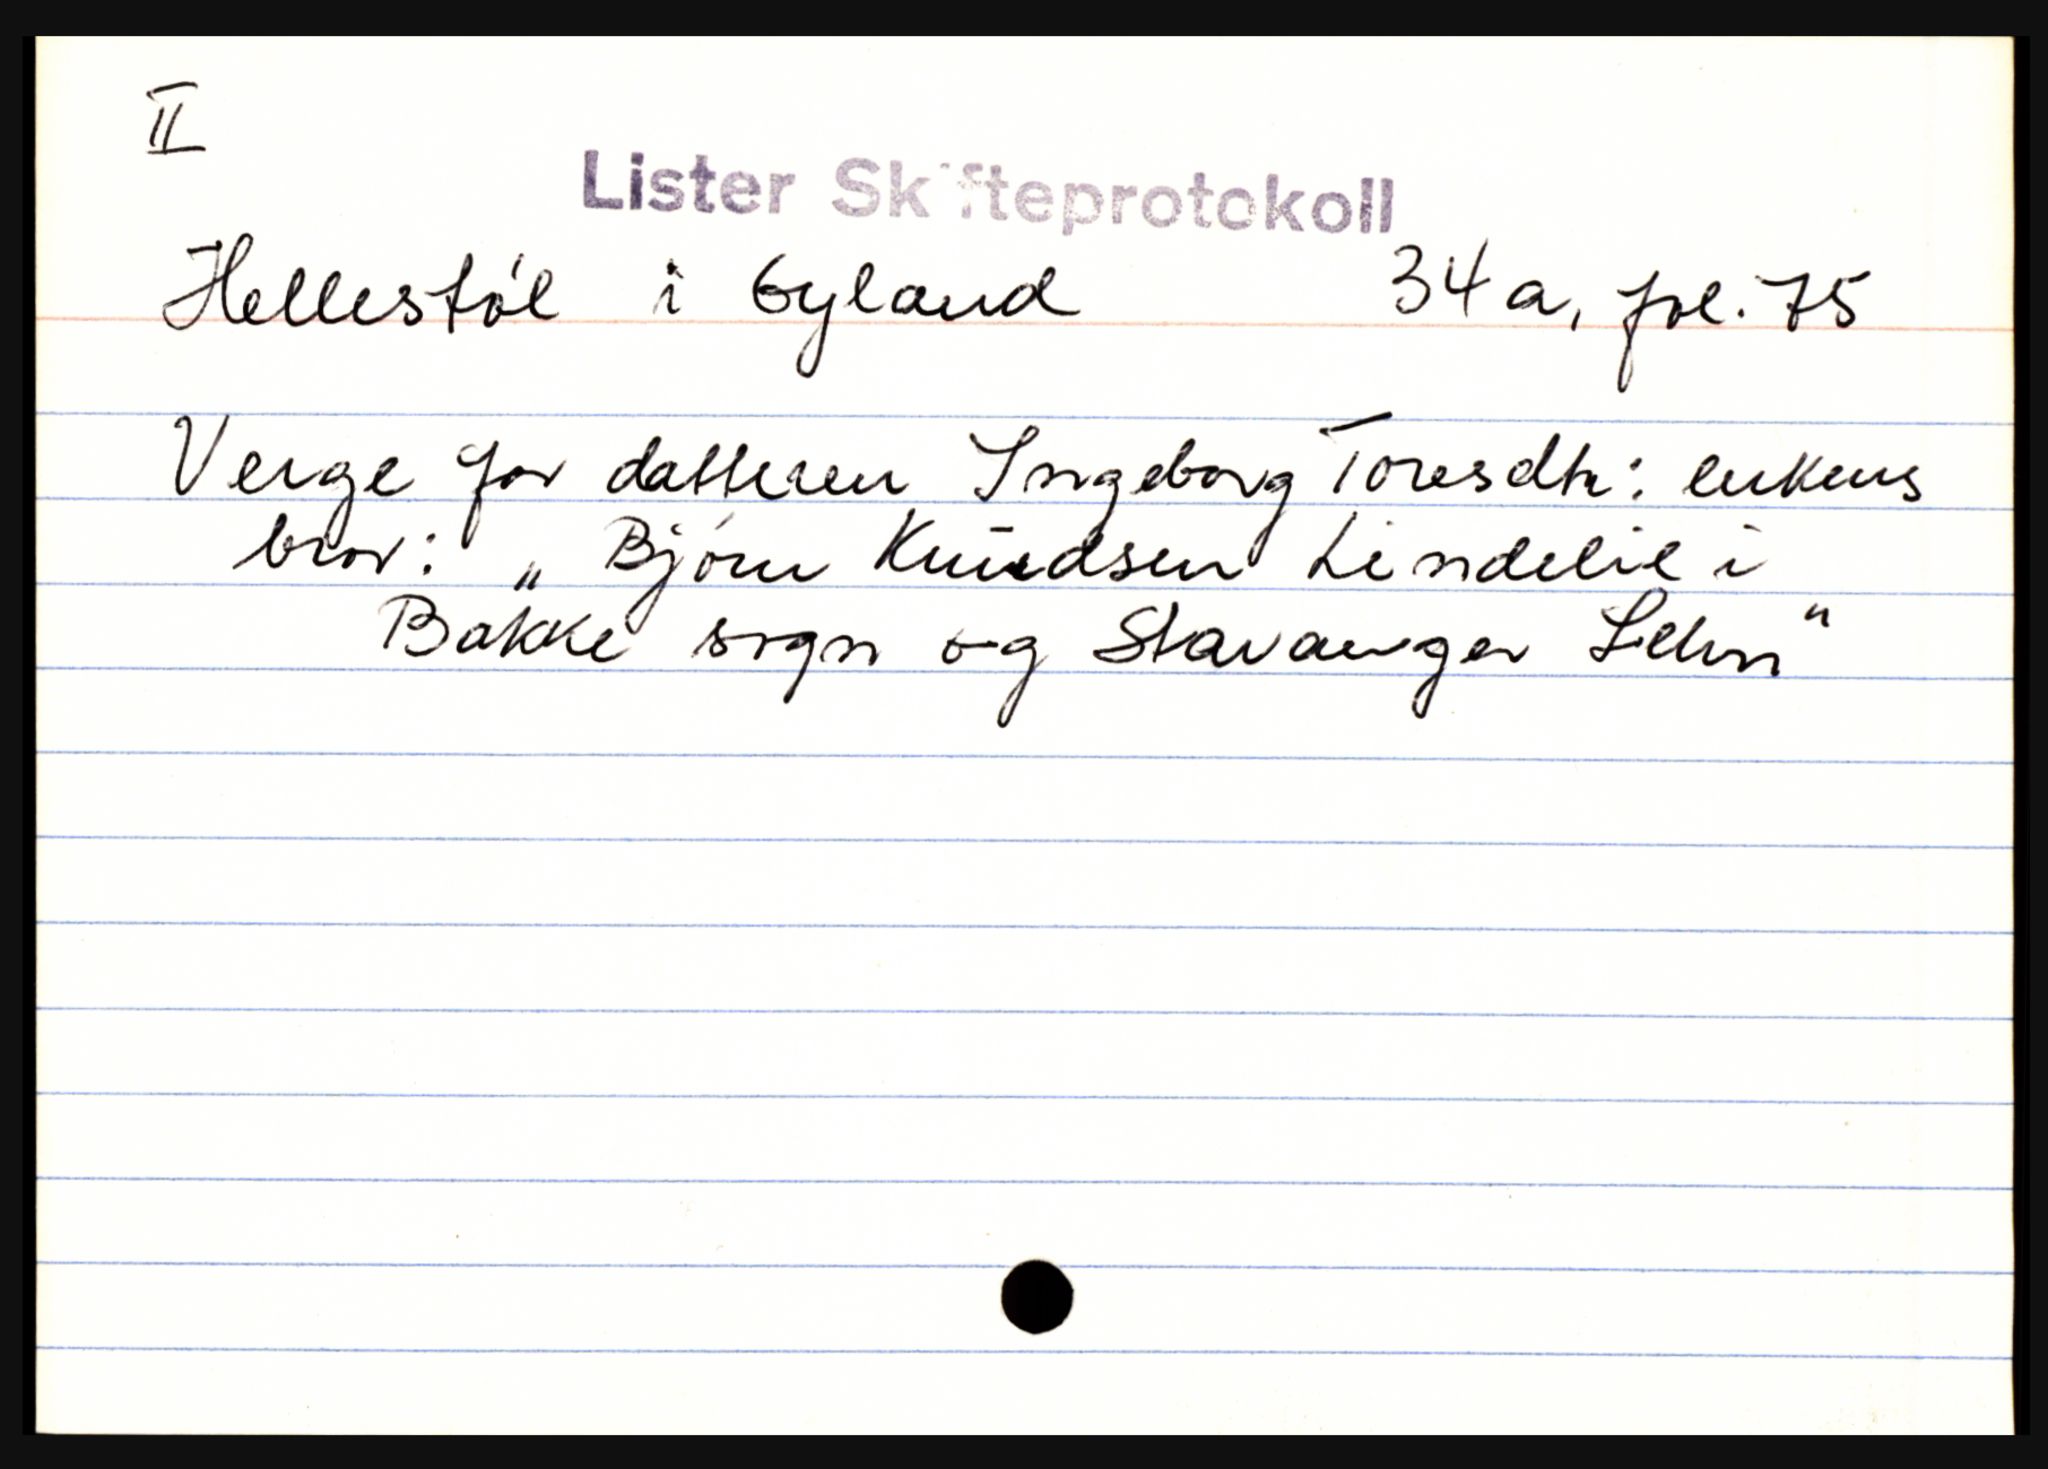 II
Lister Skifteprotokoll
Hellestøl i Gyland 34a, fol. 75
Verge for datteren Ingeborg Toresdtr: enkens
bror: „Bjørn Knudsen Lindelie i
Bakke sogn og Stavanger Lehn"